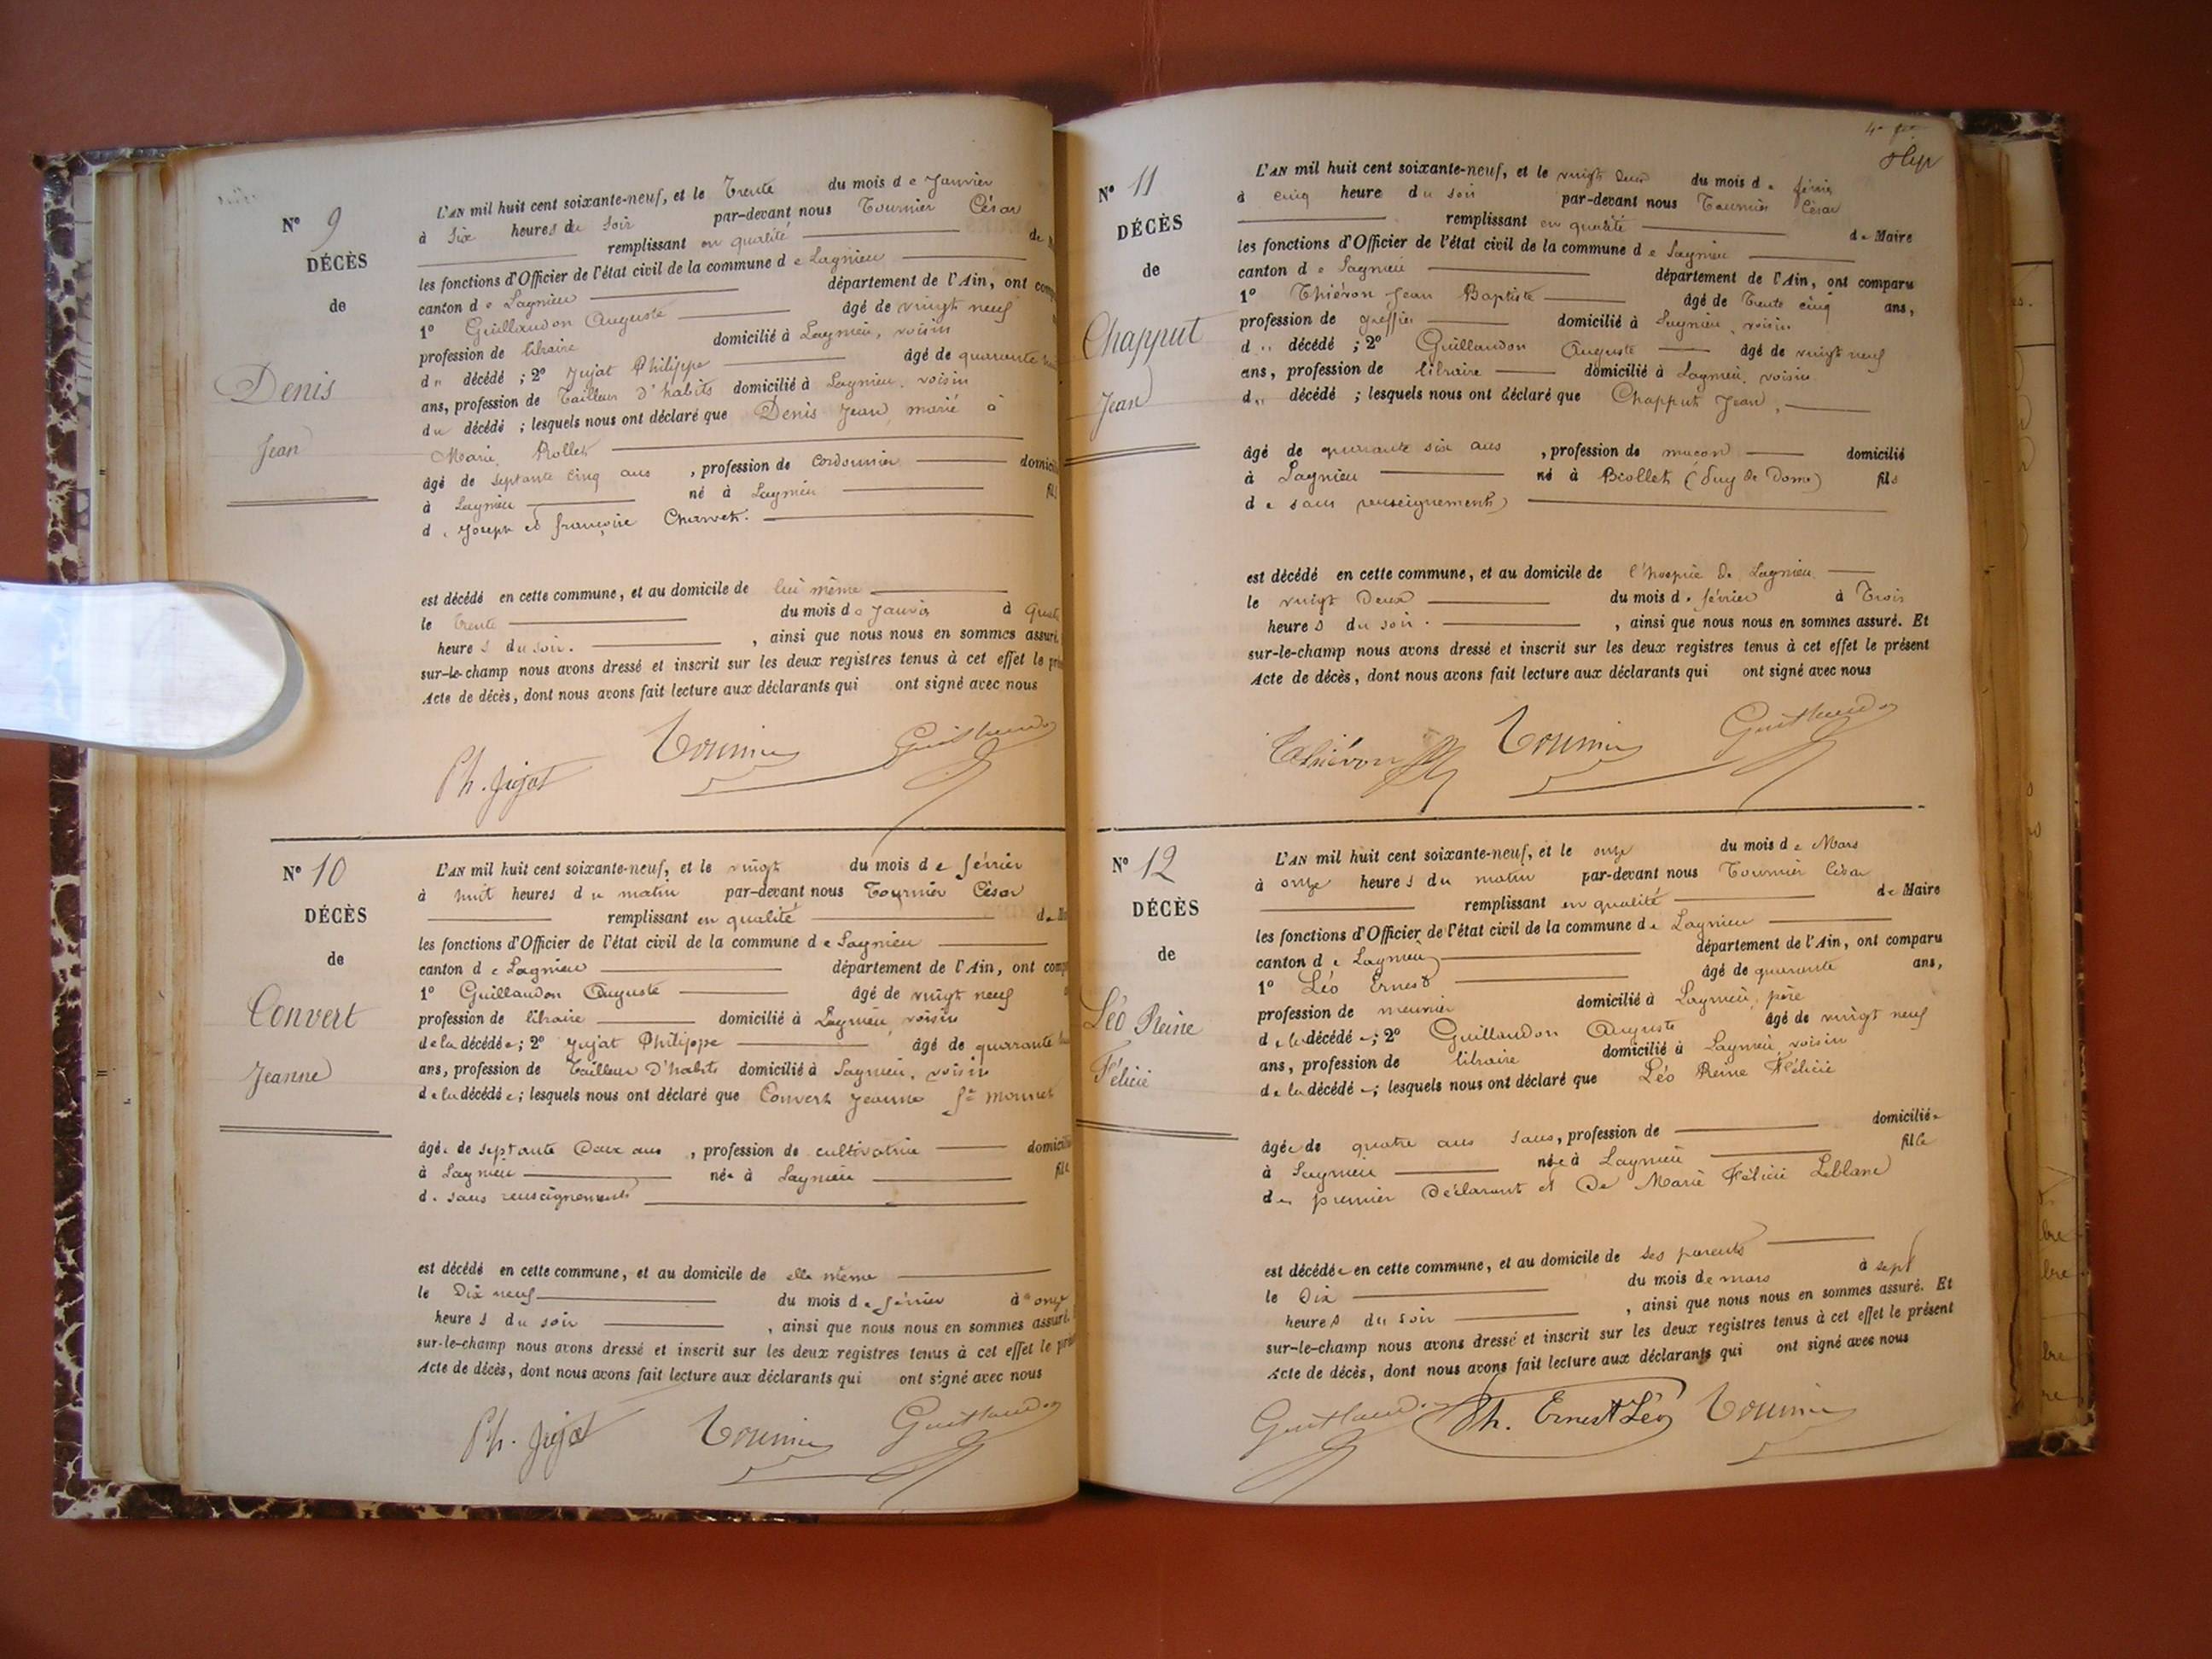 N° 9
DÉCÈS
de
Denis
Jean
L'AN mil huit cent soixante-neuf, et le Trente du mois de Janvier
à Six heures du Soir par-devant nous Tournier César
remplissant en qualité de
les fonctions d'Officier de l'état civil de la commune de Lagnieu
canton de Lagnieu département de l'Ain, ont comp
1° Guillaudon Auguste âgé de vingt neuf
profession de libraire domicilié à Lagnieu, voisin
du décédé ; 2° Jujat Philippe âgé de quarante
ans, profession de Tailleur d'habits domicilié à Lagnieu, voisin
du décédé ; lesquels nous ont déclaré que Denis Jean, marié à
Marie Rollet
âgé de septante cinq ans , profession de cordonnier domici
à Lagnieu né à Lagnieu fils
de Joseph et françoise Charvet.
est décédé en cette commune, et au domicile de lui même
le trente du mois de Janvier à
heures du soir. , ainsi que nous nous en sommes assuré.
sur-le-champ nous avons dressé et inscrit sur les deux registres tenus à cet effet le
Acte de décès, dont nous avons fait lecture aux déclarants qui ont signé avec nous
Ph. Jujat Tournier Guillaudon
N° 10
DÉCÈS
de
Convert
Jeanne
L'AN mil huit cent soixante-neuf, et le vingt du mois de février
à huit heures du matin par-devant nous Tournier César
remplissant en qualité de
les fonctions d'Officier de l'état civil de la commune de Lagnieu
canton de Lagnieu département de l'Ain, ont comp
1° Guillaudon Auguste âgé de vingt neuf
profession de libraire domicilié à Lagnieu, voisin
de la décédée ; 2° Jujat Philippe âgé de quarante
ans, profession de Tailleur d'habits domicilié à Lagnieu, voisin
de la décédée ; lesquels nous ont déclaré que Convert Jeanne
âgée de septante deux ans , profession de cultivatrice domici
à Lagnieu née à Lagnieu fille
de sans renseignements
est décédé en cette commune, et au domicile de elle même
le Dix neuf du mois de février à onze
heures du soir , ainsi que nous nous en sommes assuré.
sur-le-champ nous avons dressé et inscrit sur les deux registres tenus à cet effet le
Acte de décès, dont nous avons fait lecture aux déclarants qui ont signé avec nous
Ph. Jujat Tournier Guillaudon
N° 11
DÉCÈS
de
Chapput
Jean
L'AN mil huit cent soixante-neuf, et le vingt deux du mois de février
à cinq heure du soir par-devant nous Tournier César
remplissant en qualité de Maire
les fonctions d'Officier de l'état civil de la commune de Lagnieu
canton de Lagnieu département de l'Ain, ont comparu
1° Thiévon Jean Baptiste âgé de Trente cinq ans,
profession de greffier domicilié à Lagnieu, voisin
du décédé ; 2° Guillaudon Auguste âgé de vingt neuf
ans, profession de libraire domicilié à Lagnieu, voisin
du décédé ; lesquels nous ont déclaré que Chapput Jean,
âgé de quarante six ans , profession de maçon domicilié
à Lagnieu né à Biollet (Puy de Dome) fils
de sans renseignements
est décédé en cette commune, et au domicile de l'hospice de Lagnieu
le vingt Deux du mois de février à Trois
heures du soir. , ainsi que nous nous en sommes assuré. Et
sur-le-champ nous avons dressé et inscrit sur les deux registres tenus à cet effet le présent
Acte de décès, dont nous avons fait lecture aux déclarants qui ont signé avec nous
Thiévon Tournier Guillaudon
N° 12
DÉCÈS
de
Léo Reine
Félicie
L'AN mil huit cent soixante-neuf, et le onze du mois de Mars
à onze heures du matin par-devant nous Tournier César
remplissant en qualité de Maire
les fonctions d'Officier de l'état civil de la commune de Lagnieu
canton de Lagnieu département de l'Ain, ont comparu
1° Léo Ernest âgé de quarante ans,
profession de meunier domicilié à Lagnieu, père
de la décédée ; 2° Guillaudon Auguste âgé de vingt neuf
ans, profession de libraire domicilié à Lagnieu, voisin
de la décédée ; lesquels nous ont déclaré que Léo Reine Félicie
âgée de quatre ans sans, profession de domiciliée
à Lagnieu née à Lagnieu fille
du premier déclarant et De Marie Félicie Leblanc
est décédée en cette commune, et au domicile de ses parents
le Dix du mois de mars à sept
heures du soir , ainsi que nous nous en sommes assuré. Et
sur-le-champ nous avons dressé et inscrit sur les deux registres tenus à cet effet le présent
Acte de décès, dont nous avons fait lecture aux déclarants qui ont signé avec nous
Guillaudon Th. Ernest Léo Tournier